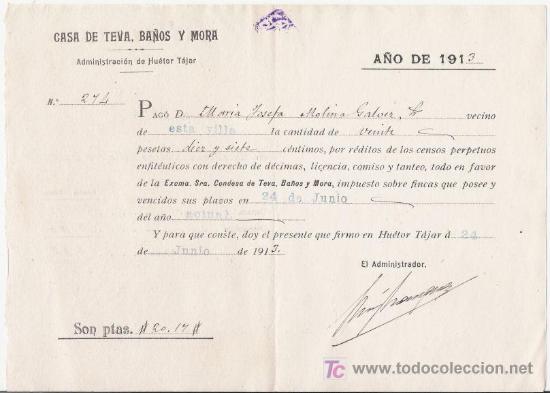 CASA DE TEVA, BAÑOS Y MORA
Administración de Huétor Tájar
AÑO DE 1913
N.º 274
PAGÓ D. Maria Josefa Molina Galvez, vecino
de esta villa la cantidad de veinte
pesetas diez y siete céntimos, por réditos de los censos perpetuos
enfitéuticos con derecho de décimas, licencia, comiso y tanteo, todo en favor
de la Excma. Sra. Condesa de Teva, Baños y Mora, impuesto sobre fincas que posee y
vencidos sus plazos en 24 de Junio
del año actual
Y para que conste, doy el presente que firmo en Huétor Tájar á 24
de Junio de 1913.
El Administrador,
Son ptas. #20.17#
www.todocoleccion.net